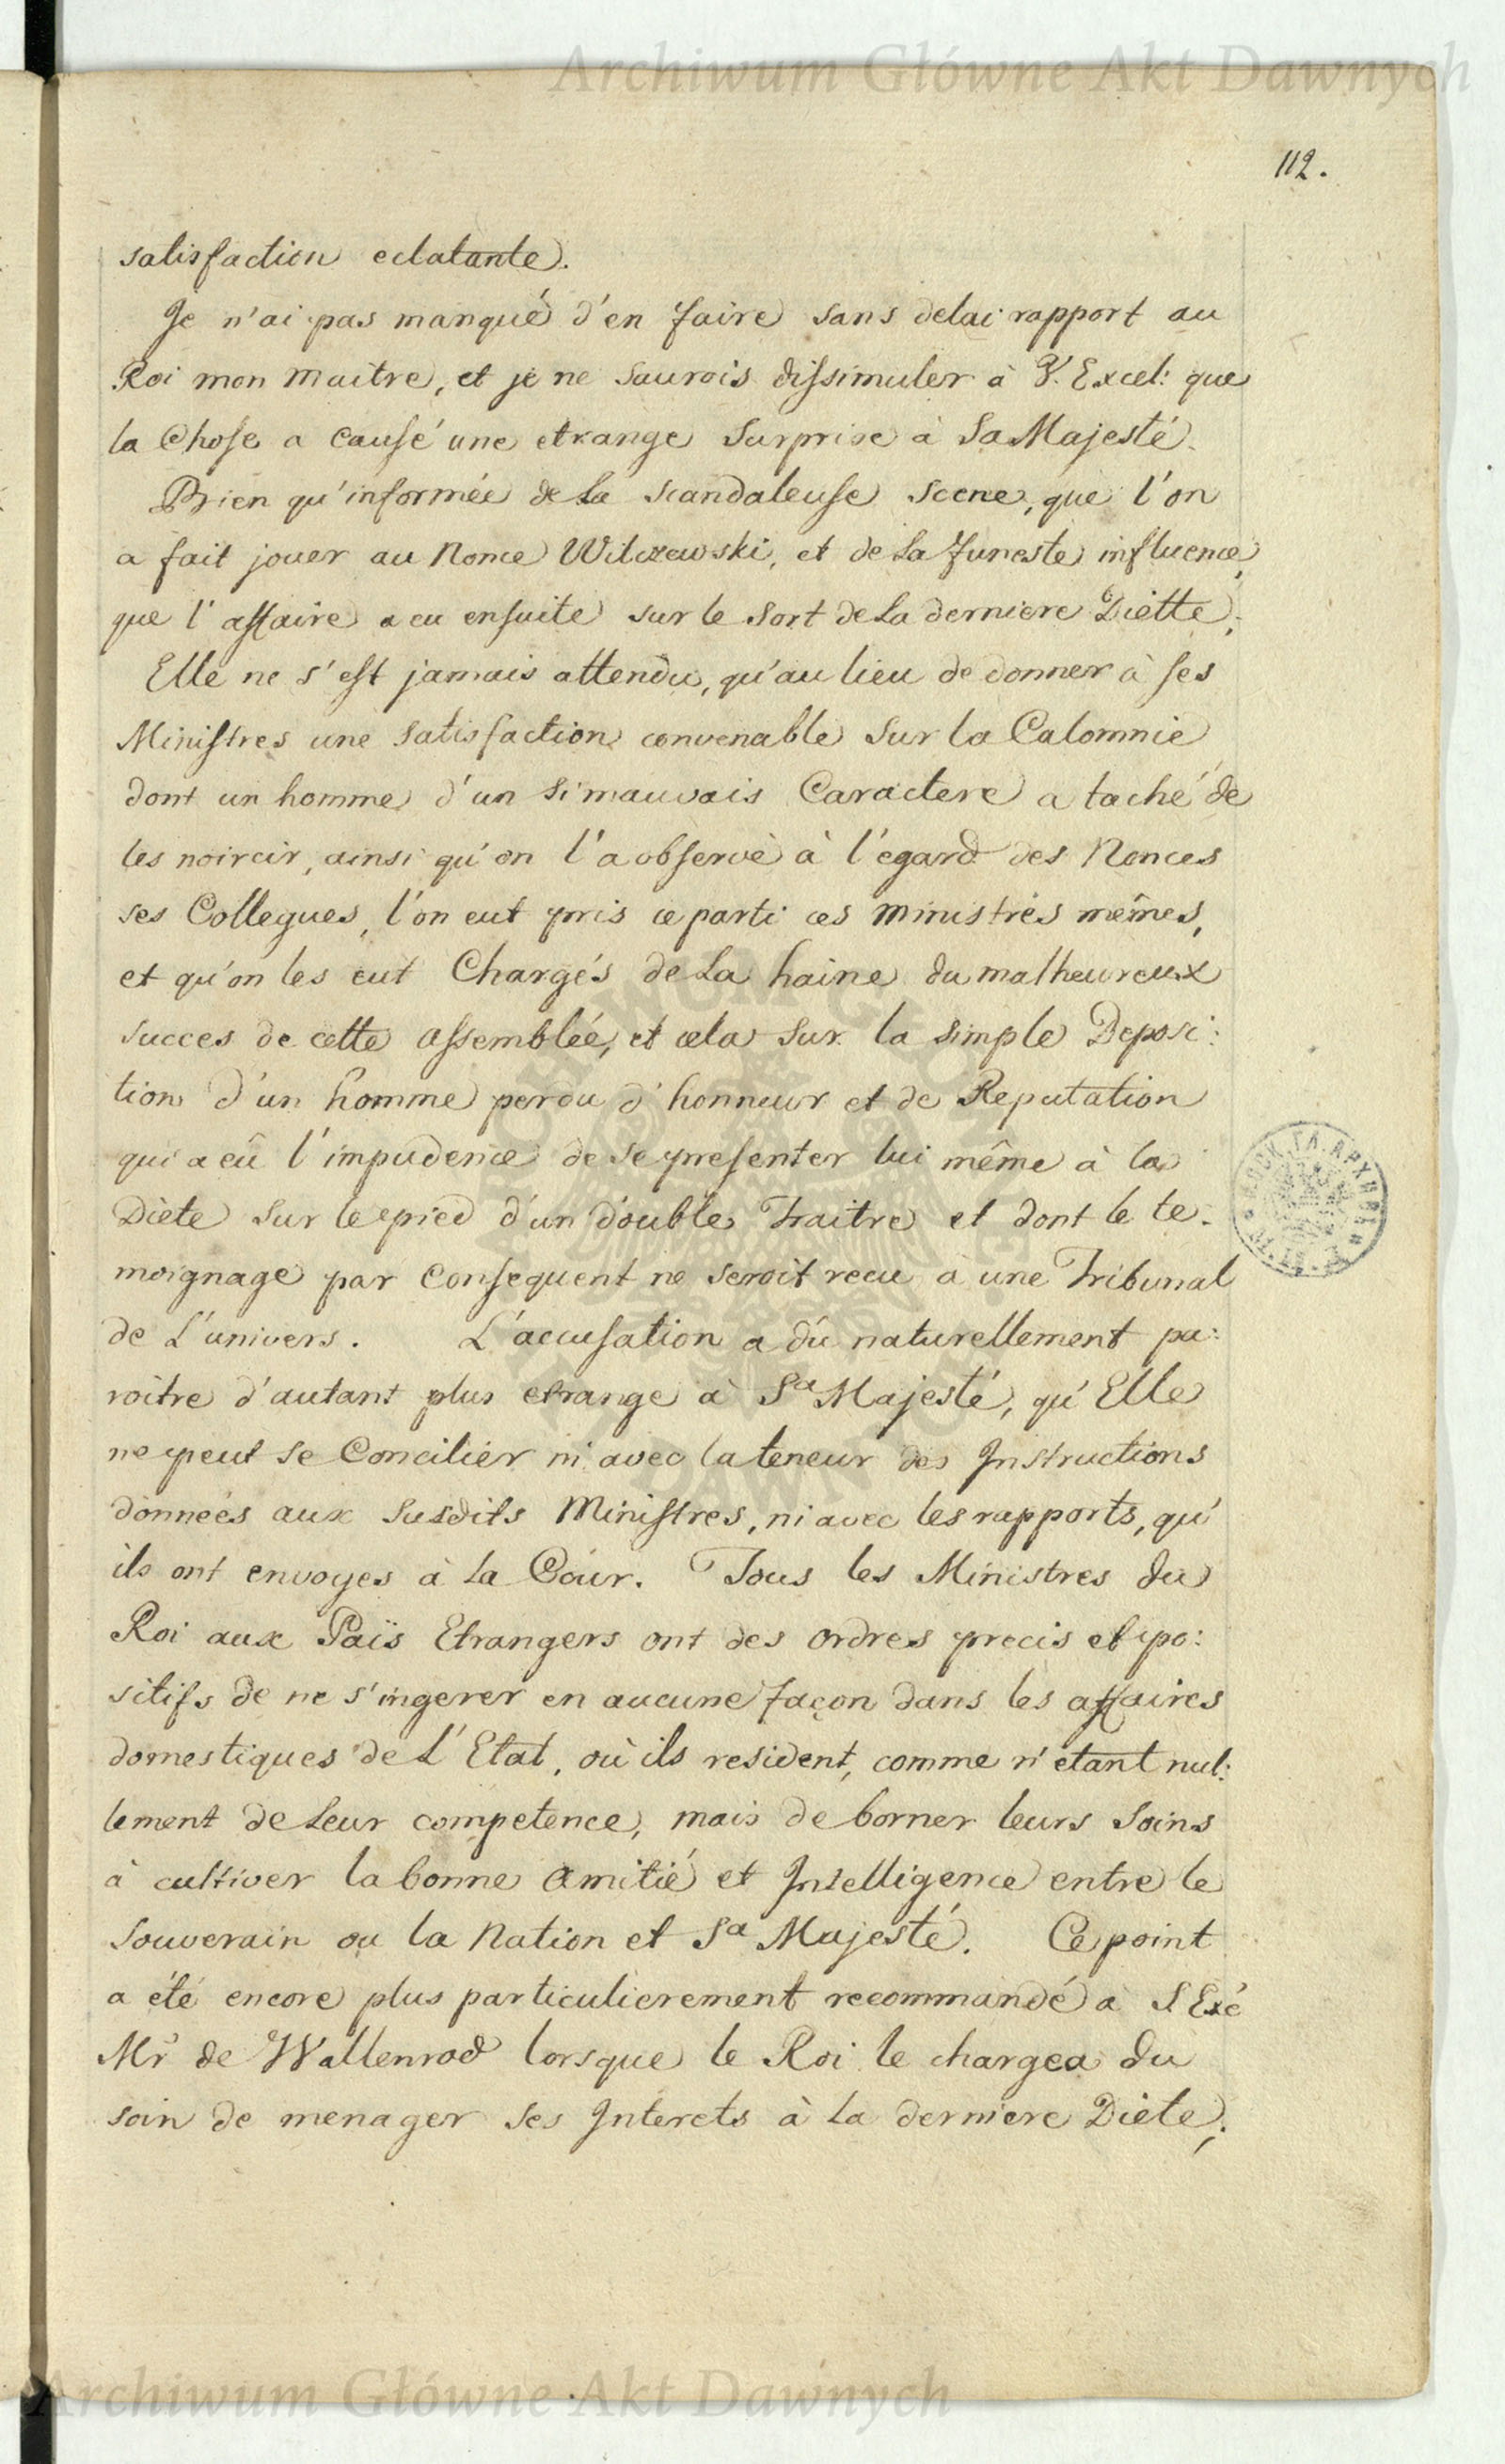 Archiwum Główne Akt Dawnych
112.
satisfaction eclatante.
Je n'ai pas manqué d'en faire sans delai rapport au
Roi mon maitre, et je ne saurois dissimuler à V. Excel: que
la Chose a causé une etrange Surprise à Sa Majesté.
Bien qu'informée de la scandaleuse scene, que l'on
a fait jouer au Nonce Wilczewski, et de la funeste influence,
que l'affaire a eu ensuite sur le Sort de la derniere Diette;
Elle ne s'est jamais attendu, qu'au lieu de donner à ses
Ministres une satisfaction convenable sur la Calomnie
dont un homme d'un si mauvais Caractere a taché de
les noircir, ainsi qu'on l'a observé à l'egard des Nonces
ses Collegues, l'on eut pris ce parti ces ministres mêmes,
et qu'on les eut Chargés de la haine du malheureux
succes de cette assemblée, et cela sur la simple Deposi:
tion d'un homme perdu d'honneur et de Reputation
qui a eû l'impudence de se presenter lui même à la
Diete sur le pied d'un double Traitre et dont le te-
moignage par consequent ne seroit recu à une Tribunal
de L'univers. L'accusation a dû naturellement pa:
roitre d'autant plus etrange à Sa Majesté, qu'Elle
ne peut se Concilier ni avec la teneur des Instructions
données aux susdits Ministres, ni avec les rapports, qu'
ils ont envoyes à la Cour. Tous les Ministres du
Roi aux Païs Etrangers ont des ordres precis et po:
sitifs de ne s'ingerer en aucune façon dans les affaires
domestiques de L'Etat, où ils resident, comme n'etant nul:
lement de leur competence, mais de borner leurs Soins
à cultiver la bonne amitié et Intelligence entre le
Souverain ou la Nation et Sa Majesté. Ce point
a été encore plus particulierement recommandé a S Exé
Mr de Wallenrod lorsque le Roi le chargea du
soin de menager ses Interets à la derniere Diete;
Archiwum Główne Akt Dawnych